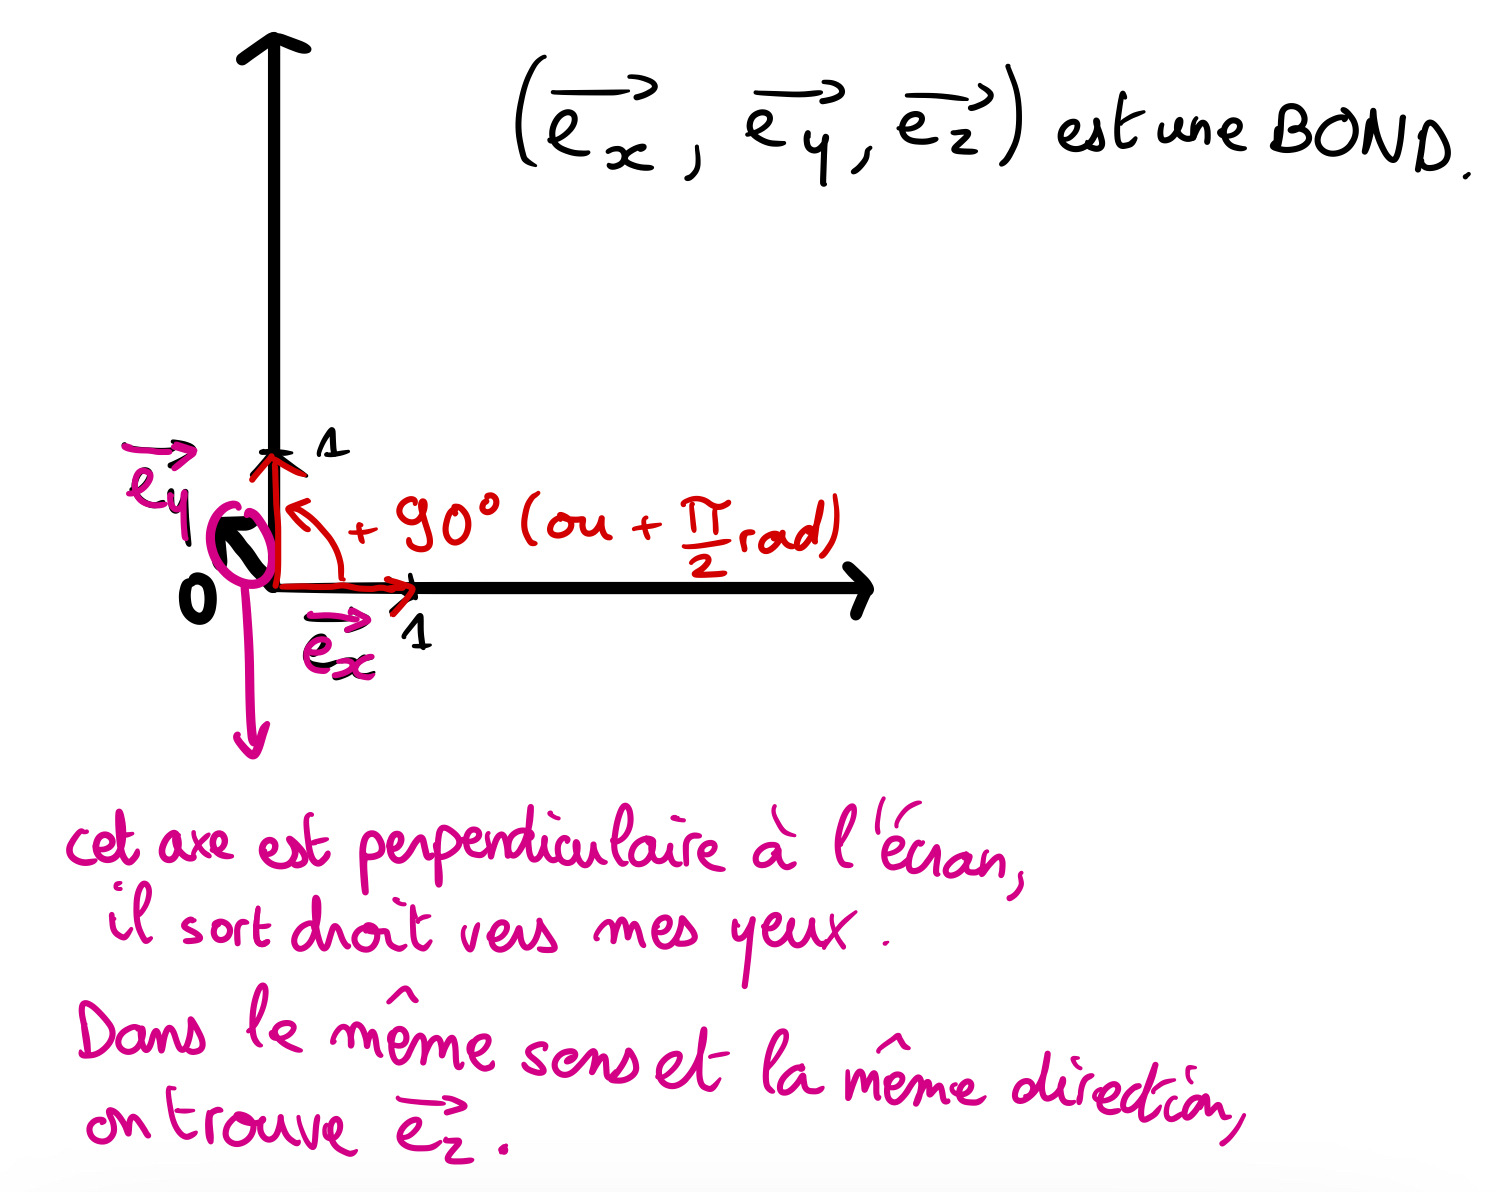 (e⃗x, e⃗y, e⃗z) est une BOND.
1
e⃗y
+ 90° (ou + π/2 rad)
0
e⃗x
1
cet axe est perpendiculaire à l'écran,
il sort droit vers mes yeux.
Dans le même sens et la même direction,
on trouve e⃗z.